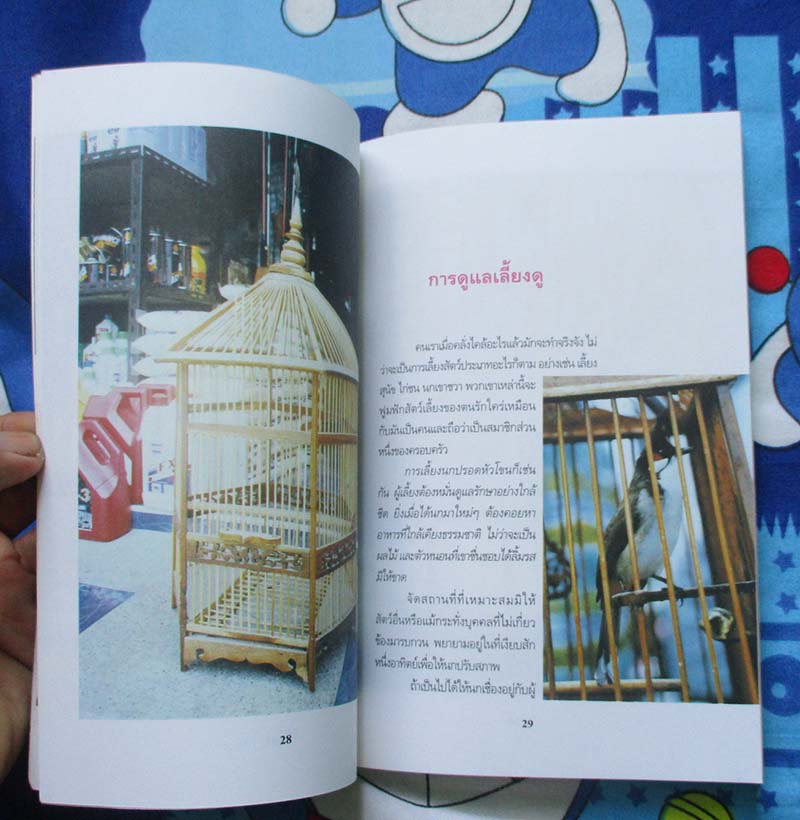 28
การดูแลเลี้ยงดู
คนเราเมื่อคลั่งไคล้อะไรแล้วมักจะทำจริงจัง ไม่
ว่าจะเป็นการเลี้ยงสัตว์ประเภทอะไรก็ตาม อย่างเช่น เลี้ยง
สุนัข ไก่ชน นกเขาชวา พวกเขาเหล่านี้จะ
ทุ่มฟักสัตว์เลี้ยงของตนรักใคร่เหมือน
กับมันเป็นคนและถือว่าเป็นสมาชิกส่วน
หนึ่งของครอบครัว
การเลี้ยงนกปรอดหัวโขนก็เช่น
กัน ผู้เลี้ยงต้องหมั่นดูแลรักษาอย่างใกล้
ชิด ยิ่งเมื่อได้นกมาใหม่ๆ ต้องคอยหา
อาหารที่ใกล้เคียงธรรมชาติ ไม่ว่าจะเป็น
ผลไม้ และตัวหนอนที่เขาชื่นชอบได้ลิ้มรส
มิให้ขาด
จัดสถานที่ที่เหมาะสมมิให้
สัตว์อื่นหรือแม้กระทั่งบุคคลที่ไม่เกี่ยว
ข้องมารบกวน พยายามอยู่ในที่เงียบสัก
หนึ่งอาทิตย์เพื่อให้นกปรับสภาพ
ถ้าเป็นไปได้ให้นกเชื่องอยู่กับผู้
29